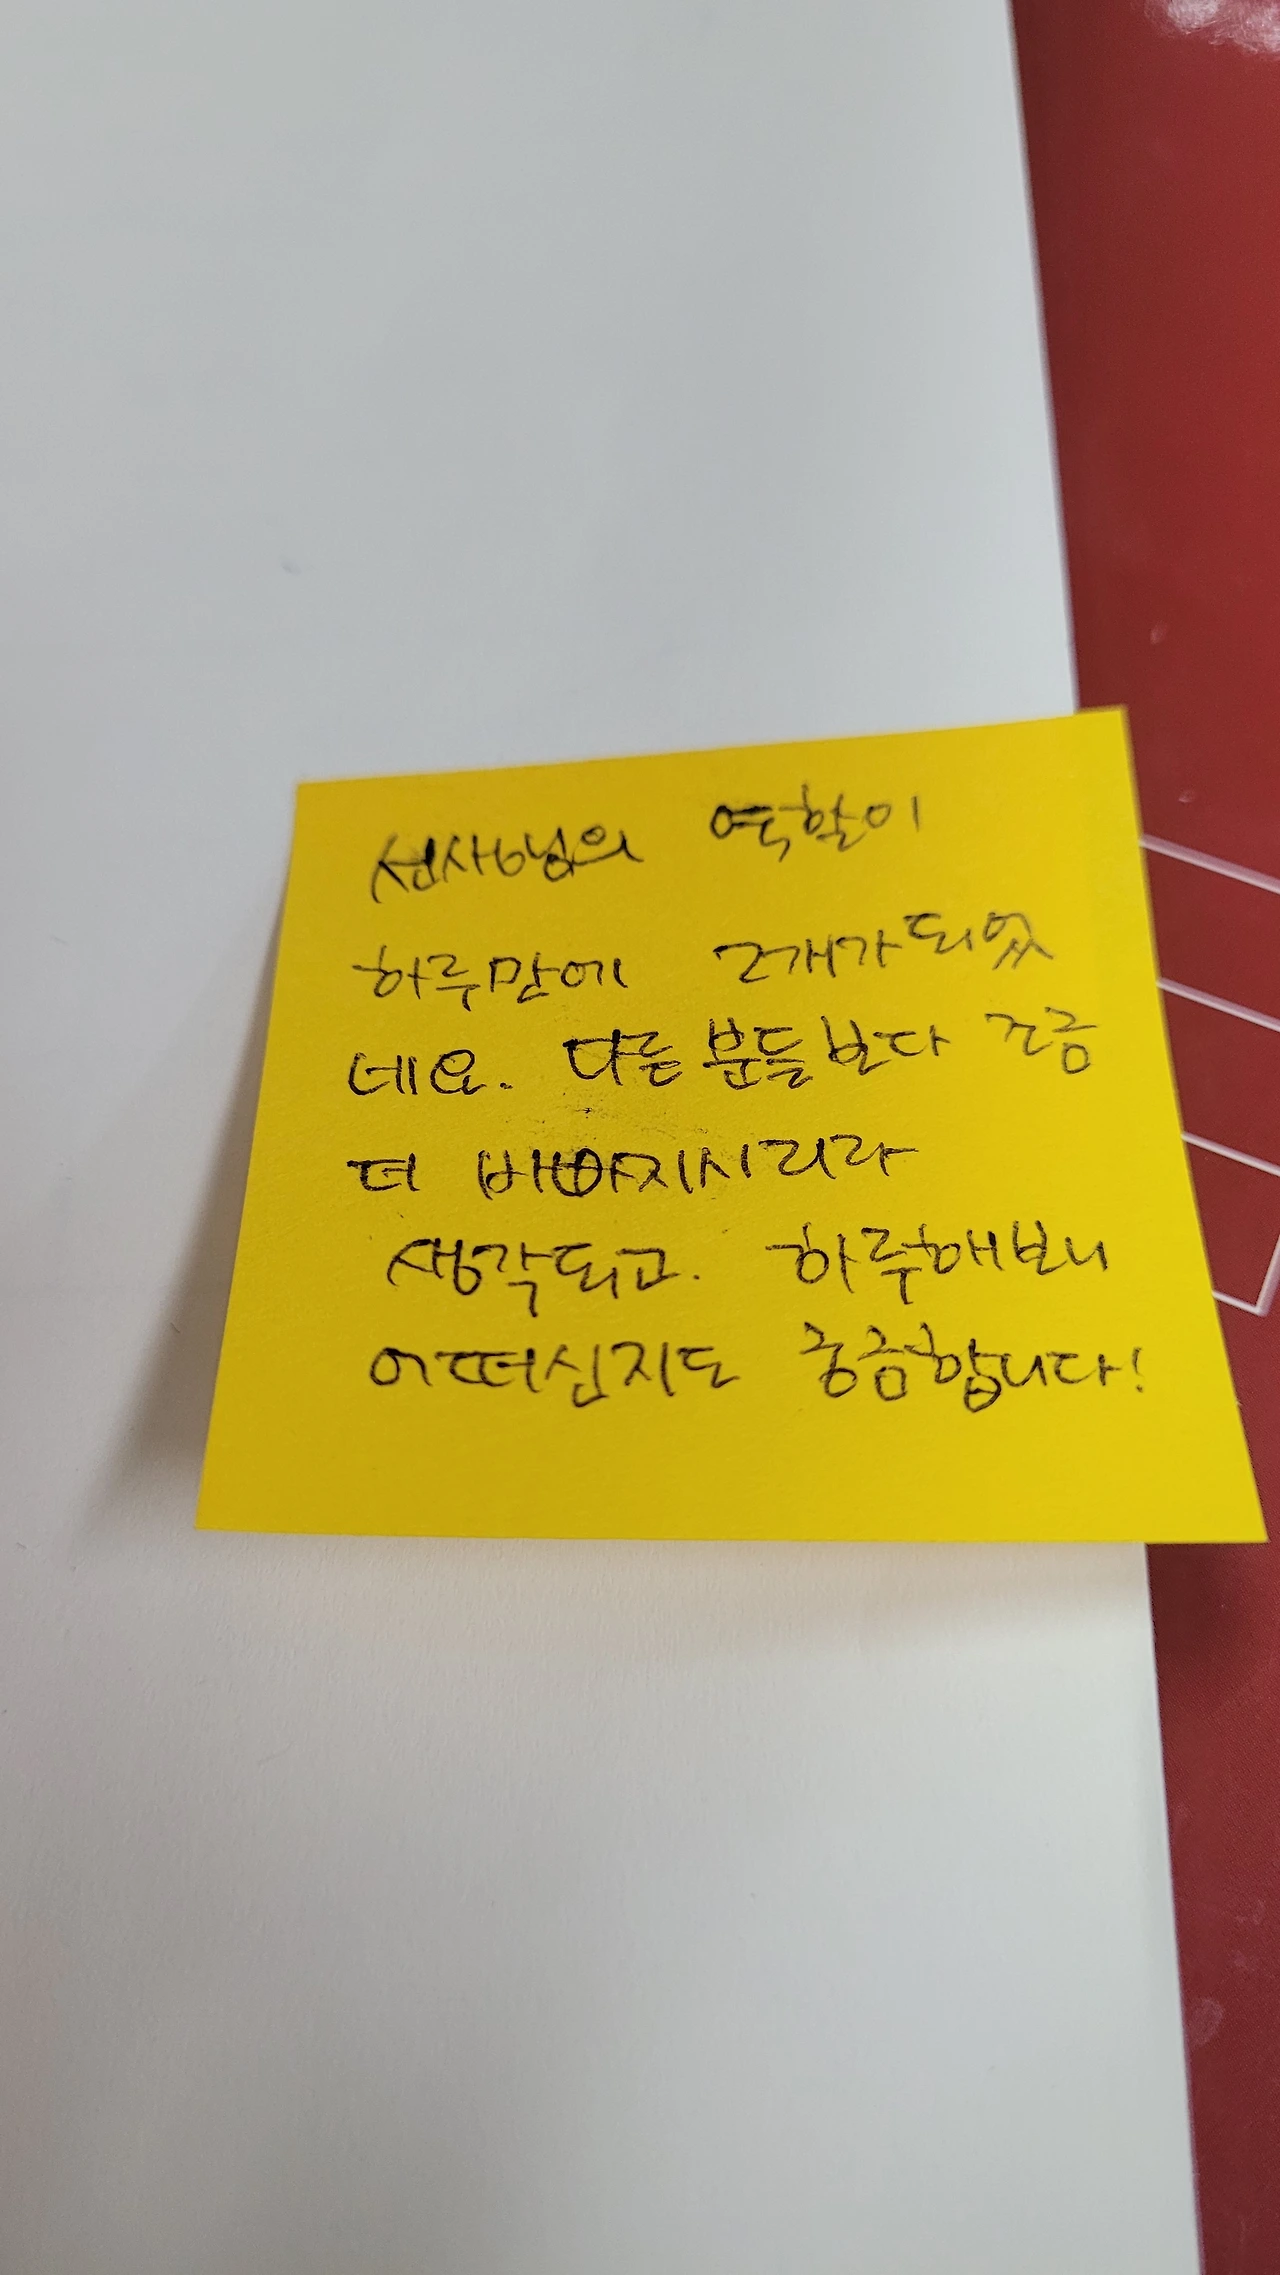 선생님의 역할이
하루만에 2개가되었
네요. 다른분들보다 조금
더 바빠지시리라
생각되고. 하루해보니
어떠신지도 궁금합니다!